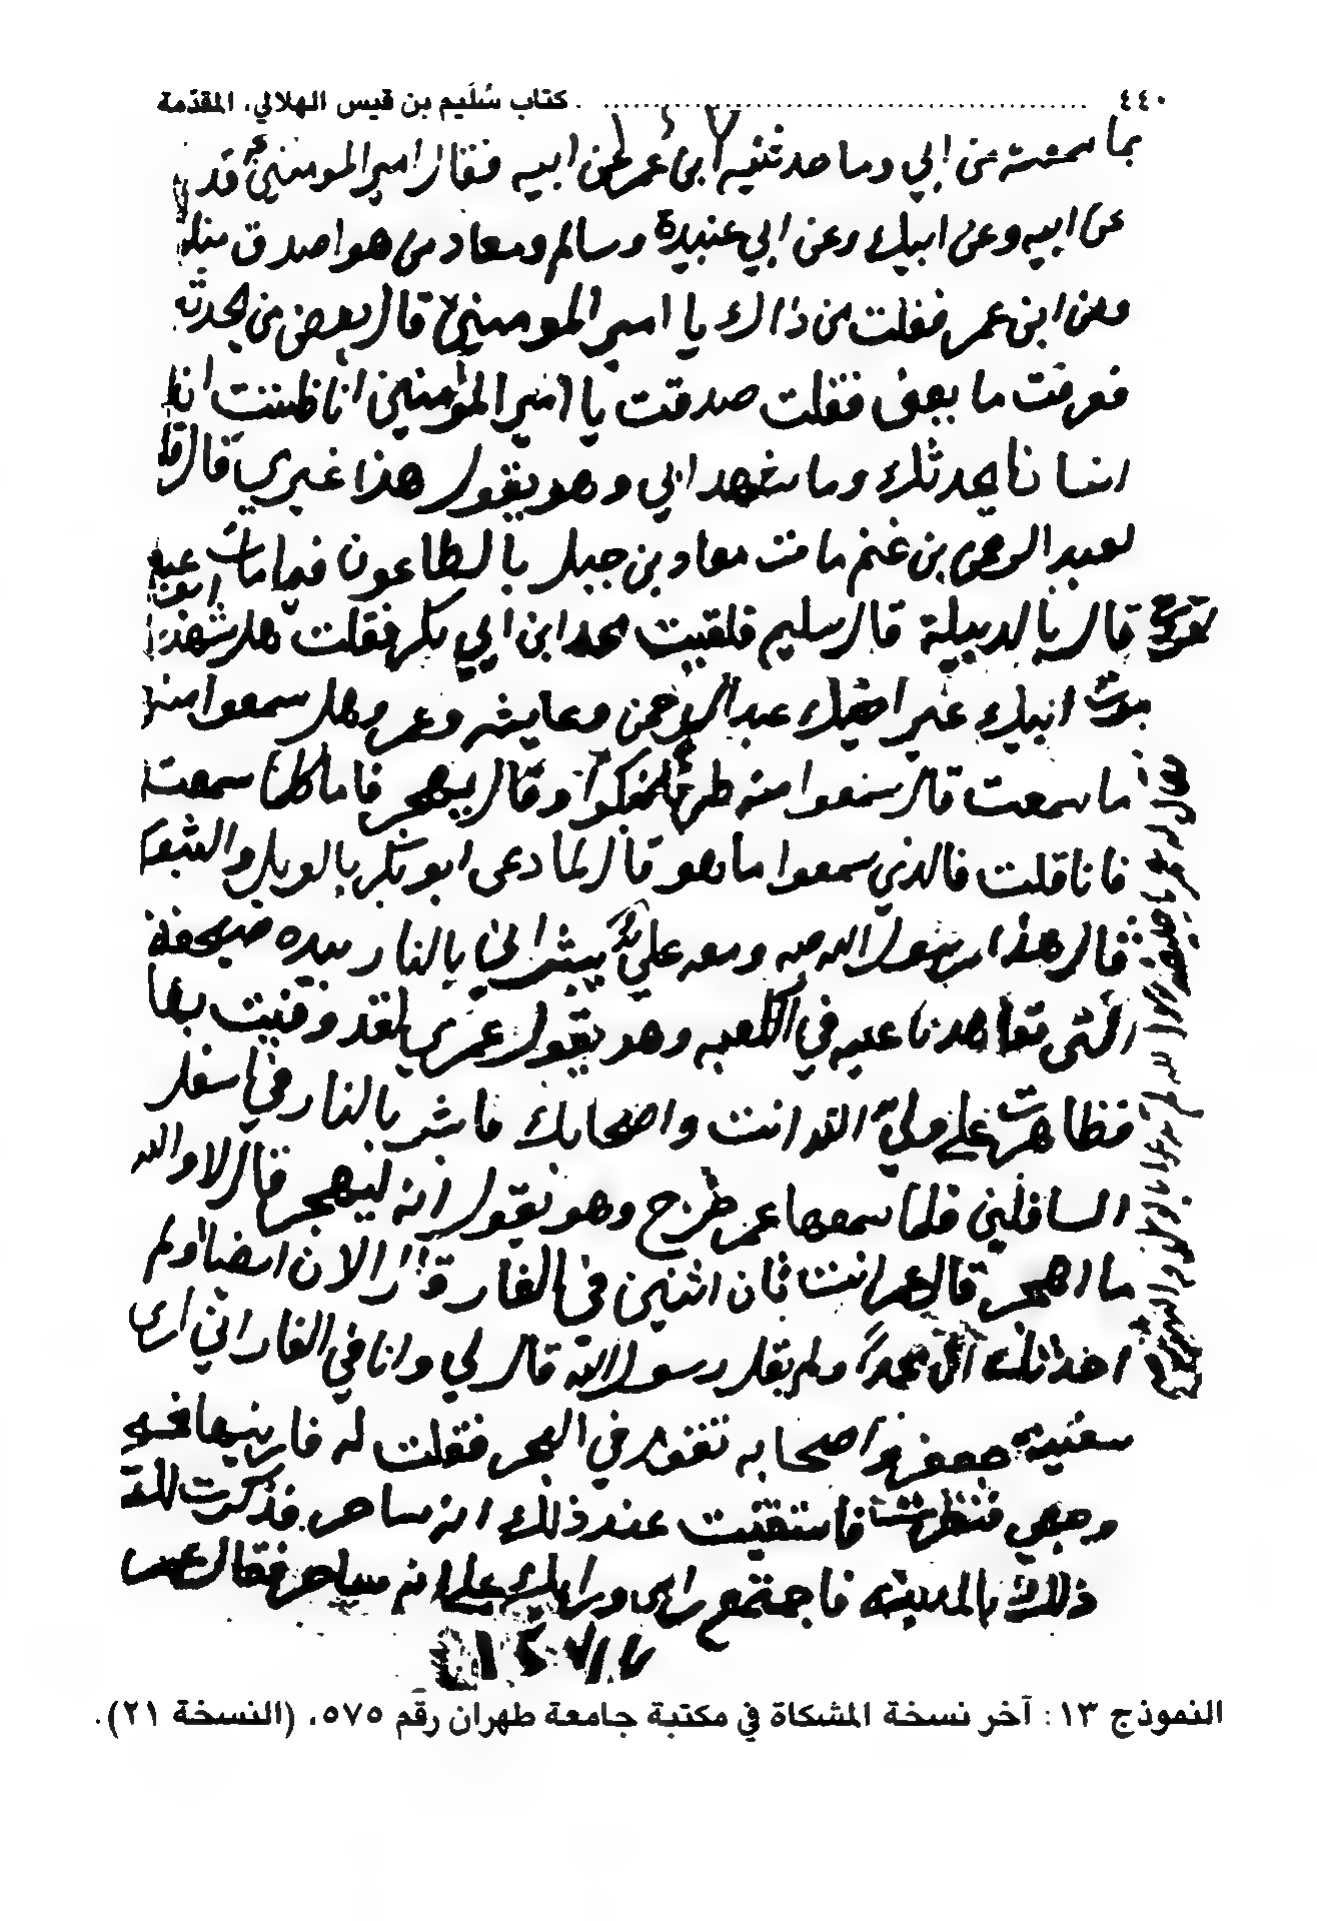 ٤٤٠ ........ كتاب سُلَيم بن قيس الهلالي، المقدّمة
بما سمعته من ابي وما حدثنيه ابن عمر عن ابيه فقال امير المومنين قد
عن ابيه وعن ابيك وعن ابي عبيدة وسالم ومعاد من هو اصدق منك
ومن ابن عمر فقلت من ذاك يا امير المومنين قال بعض من يحدثه
فعرفت ما يعنى فقلت صدقت يا امير المؤمنين انا ظننت ان
انسانا يحدثك وما شهد ابي وهو يقول هذا غيري قال
لعبد الرحمن بن غنم مات معاد بن جبل بالطاعون فبما مات
قال بالدبيلة قال سليم فلقيت محمد ابن ابي بكر فقلت هل شهد
موت ابيك غير اخيك عبد الرحمن وعايشه وعمر وهل سمعوا منه
ما سمعت قال سمعوا منه طرفا فبكوا وقال يهجر فاما كلما سمعت
فانا قلت فالذي سمعوا ما هو قال لما دعى ابو بكر بالويل والثبو
فقال هذا رسول الله ص ومعه علي يبشراني بالنار بيده صحيفة
التى تعاهدنا عليه في الكعبه وهو يقول عمري لقد وفيت بها
فظاهرت على ولي الله انت واصحابك فابشر بالنار في اسفل
السافلين فلما سمعها عمر خرج وهو يقول انه ليهجر قال لا والله
ما اهجر قال عمر انت ثان اثنين في الغار قال الان ايضا اولم
احدثك ان محمدا ولم يقل رسول الله قال لي وانا في الغار اني ارى
سفينه جعفر واصحابه تغور في البحر فقلت له فارينها فمسح
وجهي فنظرت فاستقنت عند ذلك انه ساحر فذكرت لك
ذلك بالمدينه فاجتمع راى ورايك على انه ساحر فقال عمر
النموذج ١٣: آخر نسخة المشكاة في مكتبة جامعة طهران رقم ٥٧٥، (النسخة ٢١).